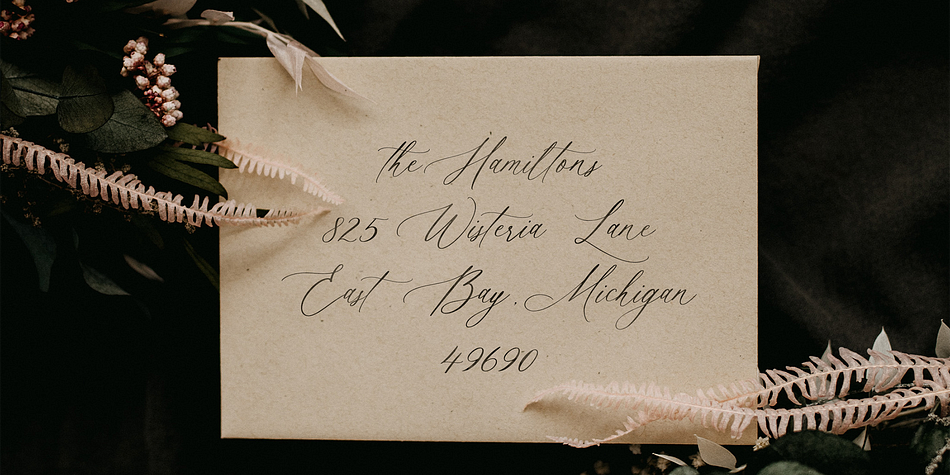 the Hamiltons
825 Wisteria Lane
East Bay, Michigan
49690